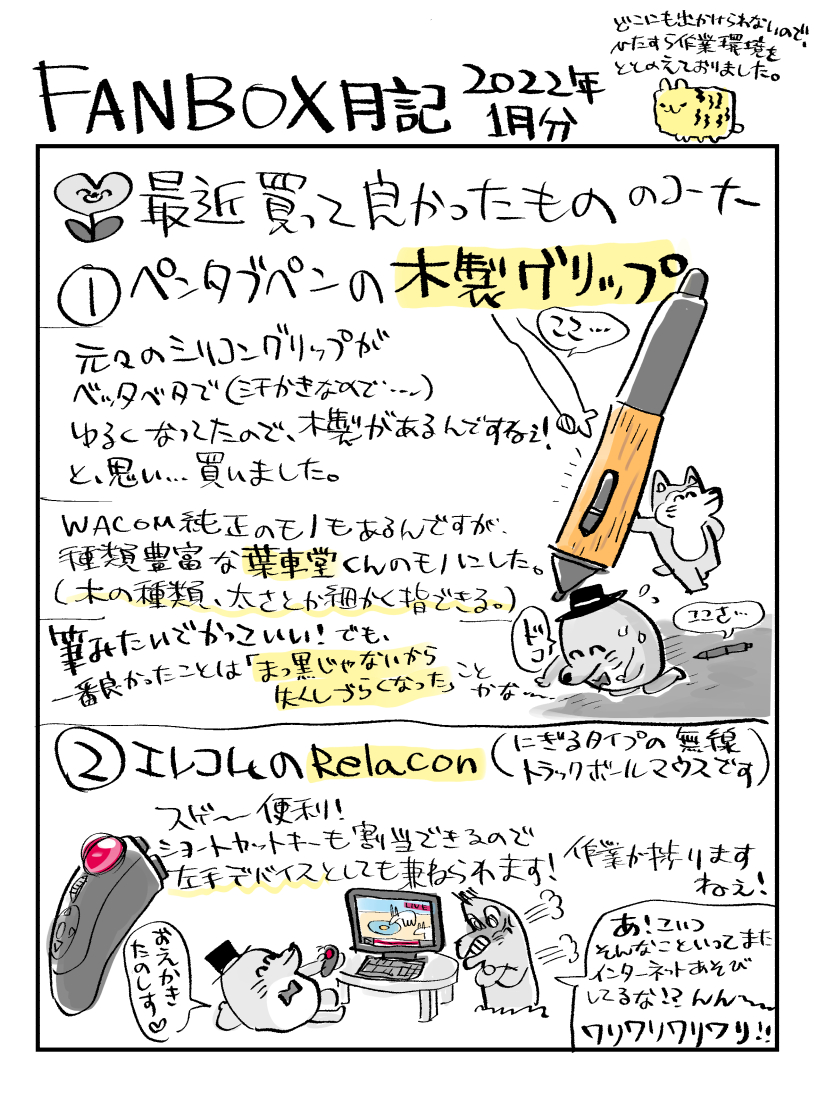 どこにも出かけられないので、
ひたすら作業環境を
ととのえておりました。
FANBOX月記 2022年
1月分
最近買って良かったもの のコーナー
① ペンタブペンの木製グリップ
ここ…
元々のシリコングリップが
ベッタベタで(汗かきなので……)
ゆるくなってたので、木製があるんですねぇ!
と、思い…買いました。
WACOM純正のモノもあるんですが、
種類豊富な葉車堂くんのモノにした。
(木の種類、太さとか細かく指できる。)
筆みたいでかっこいい!でも、
一番良かったことは「まっ黒じゃないから
失くしづらくなった」こと
かな…
ドコ
ココさ…
② エレコムのRelacon (にぎるタイプの無線
トラックボールマウスです)
スゲ〜便利!
ショートカットキーも割当できるので
左手デバイスとしても兼ねられます!
作業が捗ります
ねぇ!
LIVE
おえかき
たのしす♡
あ!こいつ
そんなこといってまた
インターネットあそび
してるな!?んん〜
ワリワリワリワリ!!